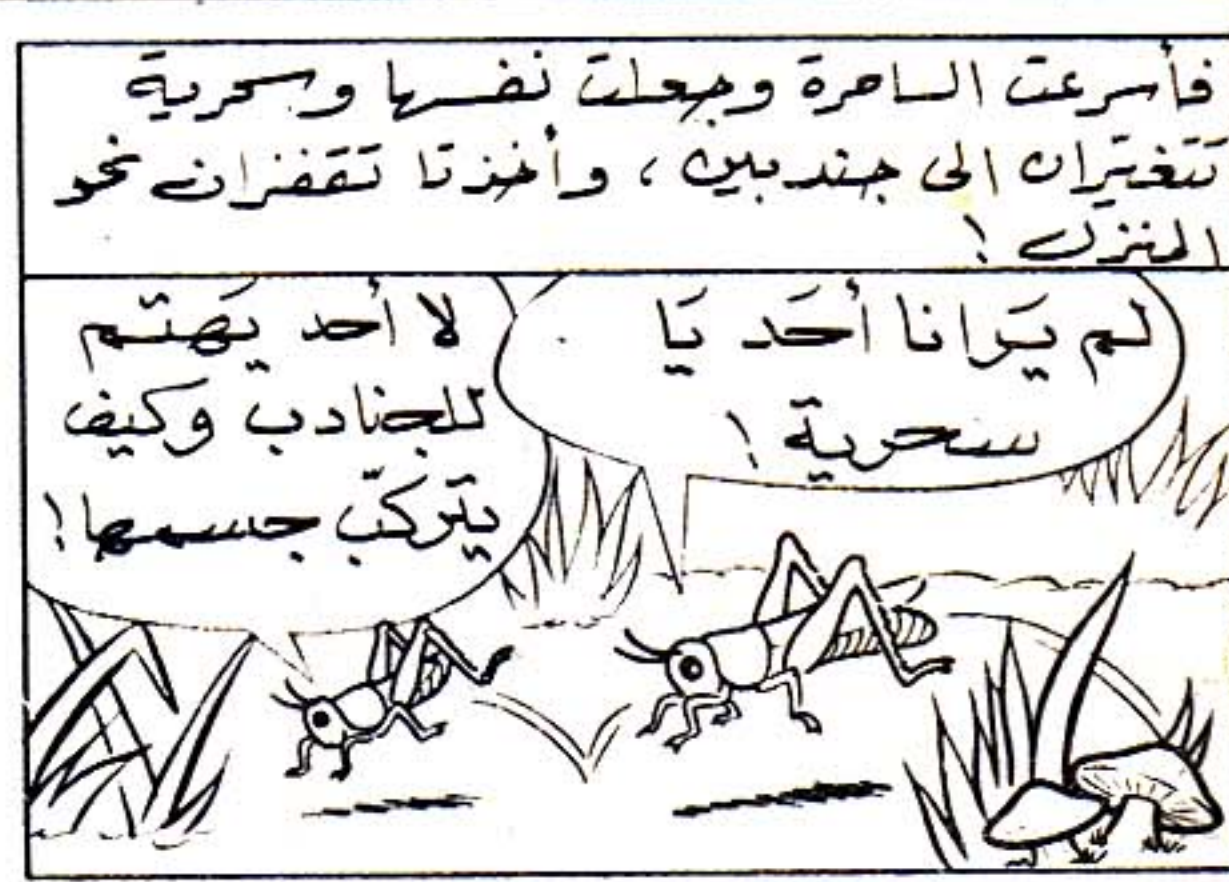 فأسرعت الساحرة وجعلت نفسها وسحرية
تتغيّران الى جندبين ، وأخذتا تقفزان نحو
المنزل !
لم يَرانا أحَد يَا
سحرية !
لا أحد يَهتم
للجنادب وكيف
يتركّب جسمها !